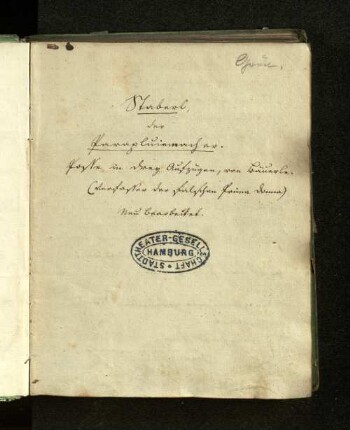 Staberl,
der
Parapluiemacher.
Posse in drey Aufzügen, von Bäuerle.
(Verfasser der falschen Prima Donna)
Neu bearbeitet.
STADTTHEATER-GESELLSCHAFT
HAMBURG